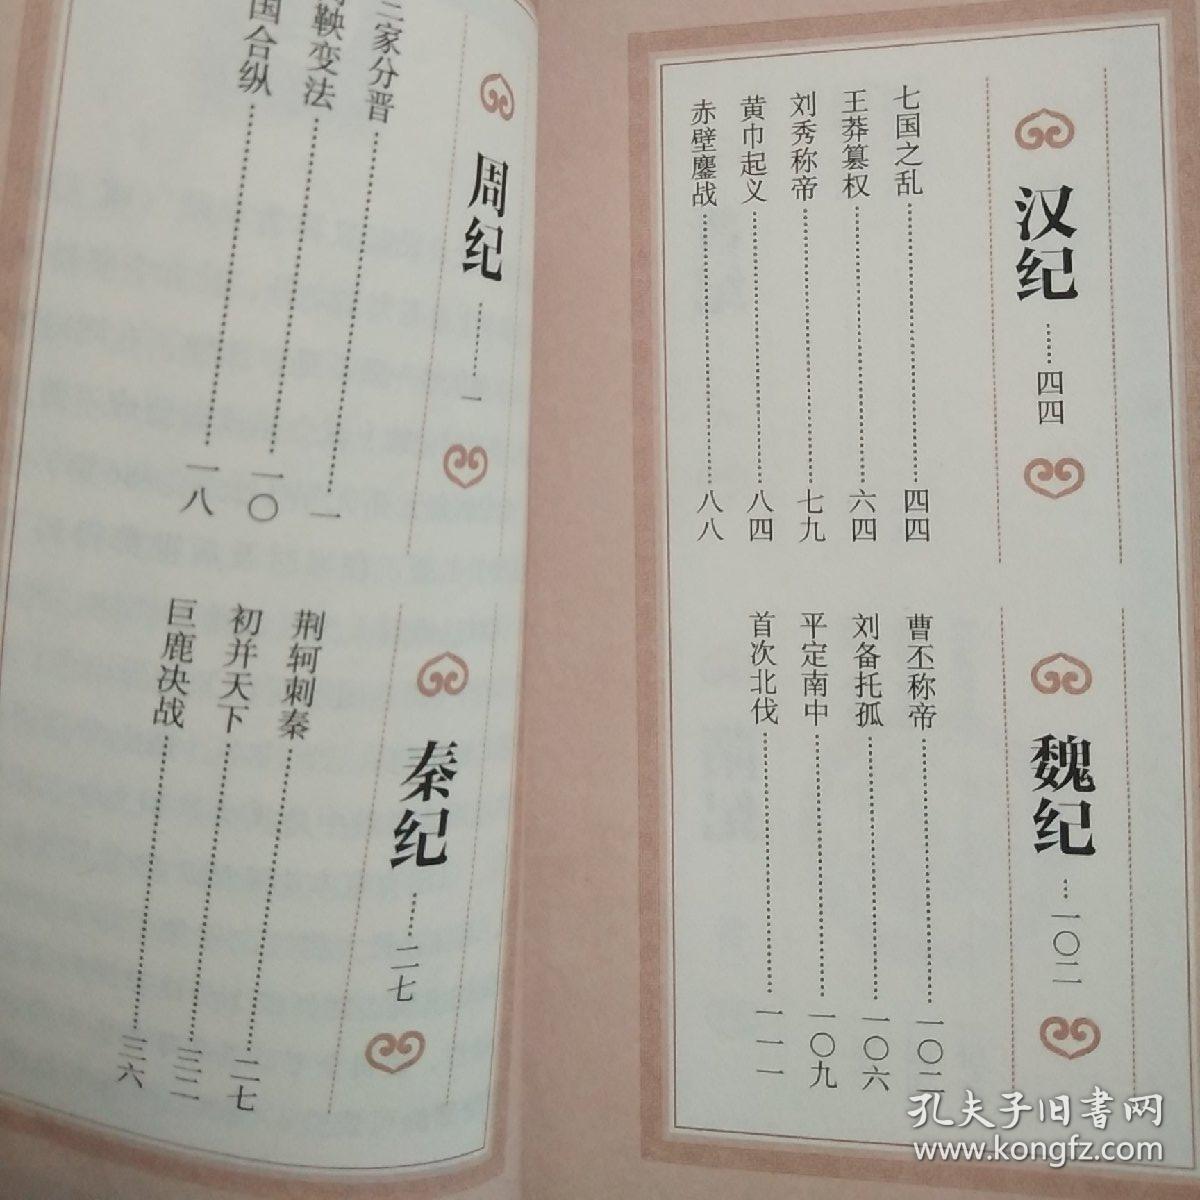 周纪……一
家分晋……一
鞅变法……一〇
国合纵……一八
秦纪……二七
荆轲刺秦……二七
初并天下……三二
巨鹿决战……三六
汉纪……四四
七国之乱……四四
王莽篡权……六四
刘秀称帝……七九
黄巾起义……八四
赤壁鏖战……八八
魏纪…一〇二
曹丕称帝……一〇二
刘备托孤……一〇六
平定南中……一〇九
首次北伐……一一一
孔夫子旧书网
www.kongfz.com